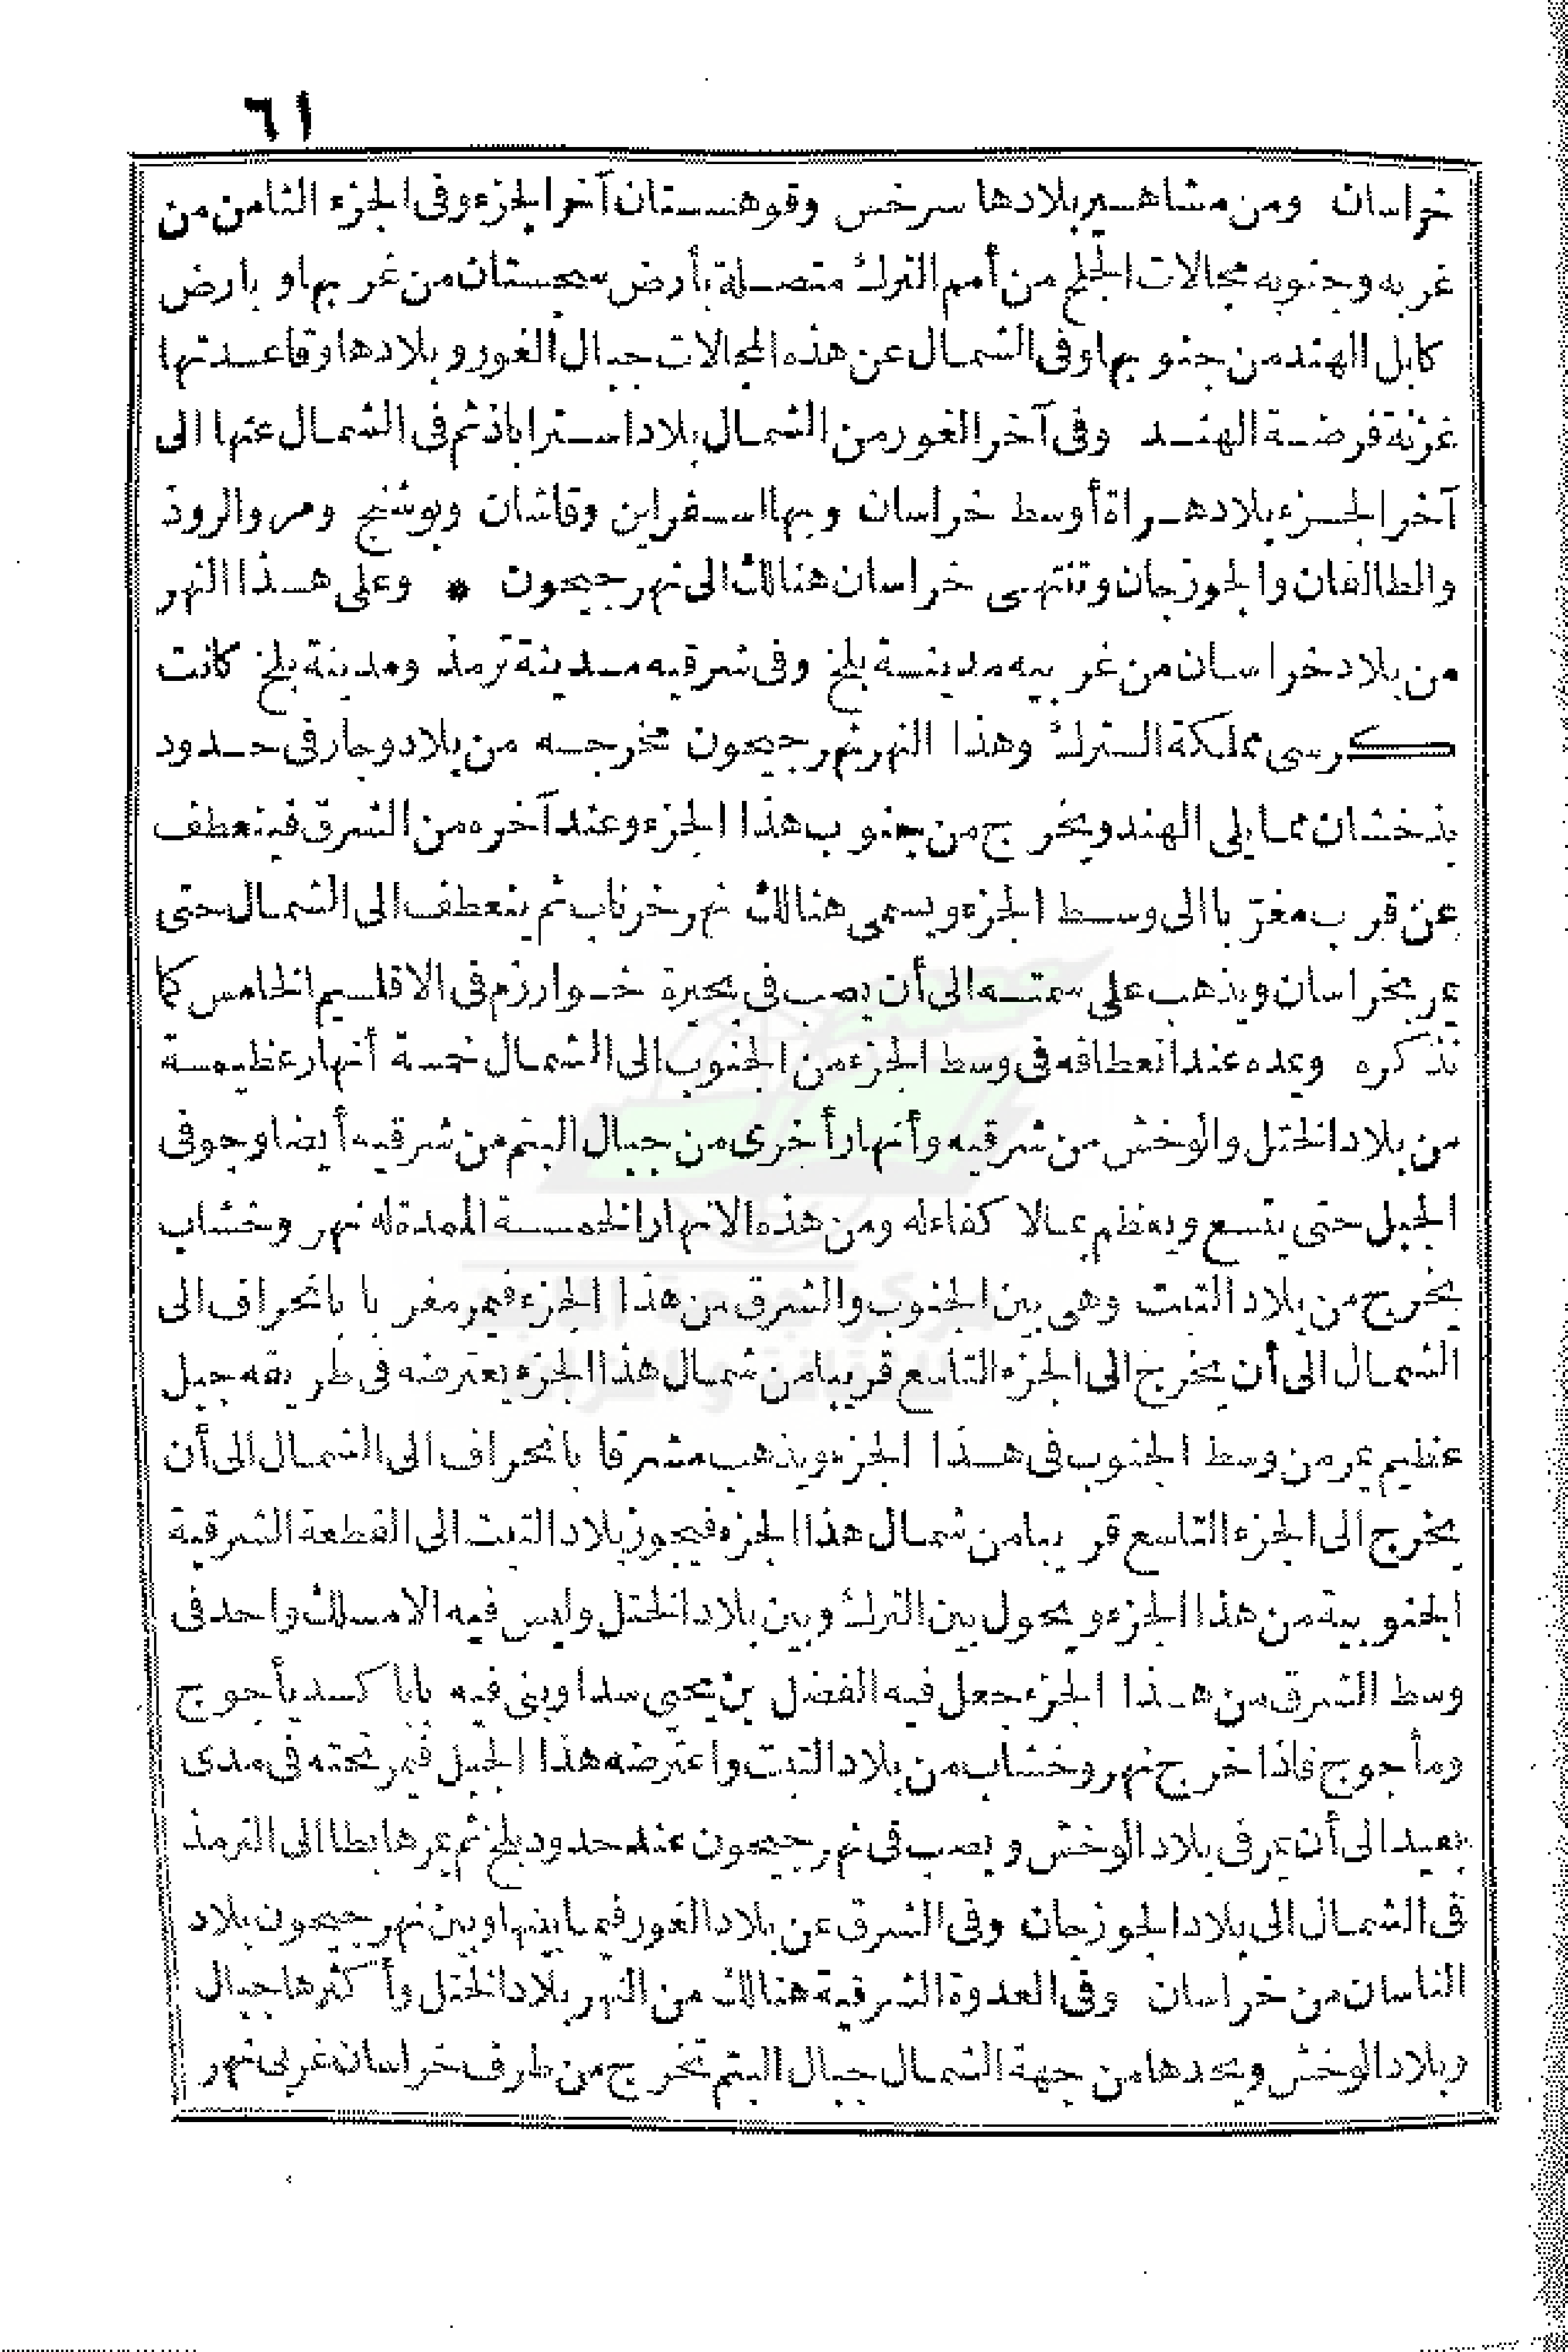 ٦١
خراسان ومن مشاهير بلادها سرخس وقوهستان آخر الجزء وفى الجزء الثامن من
غربه وجنوبه مجالات الجلح من أمم الترك متصلة بأرض سجستان من غربها وبارض
كابل الهند من جنوبها وفى الشمال عن هذه المجالات جبال الغور وبلادها وقاعدتها
غزنة فرضة الهند وفى آخر الغور من الشمال بلاد استراباذ ثم فى الشمال عنها الى
آخر الجزء بلاد هراة أوسط خراسان وبها اسفراين وقاشان وبوشنج ومرو الروذ
والطالقان والجوزجان وتنتهى خراسان هنالك الى نهر جيحون * وعلى هذا النهر
من بلاد خراسان من غربيه مدينة بلخ وفى شرقيه مدينة ترمذ ومدينة بلخ كانت
كرسى مملكة الترك وهذا النهر نهر جيحون مخرجه من بلاد وجار فى حدود
بذخشان مما يلى الهند ويخرج من جنوب هذا الجزء وعند آخره من الشرق فينعطف
عن قرب مغرّبا الى وسط الجزء ويسمى هنالك نهر خرناب ثم ينعطف الى الشمال حتى
يمر بخراسان ويذهب على سمته الى أن يصب فى بحيرة خوارزم فى الاقليم الخامس كما
نذكره ويمده عند انعطافه فى وسط الجزء من الجنوب الى الشمال خمسة أنهار عظيمة
من بلاد الختل والوخش من شرقيه وأنهار أخرى من جبال البتم من شرقيه أيضا وجوفى
الجبل حتى يتسع ويعظم بما لا كفاءله ومن هذه الانهار الخمسة الممدة له نهر وخشاب
يخرج من بلاد التبت وهى بين الجنوب والشرق من هذا الجزء فيمر مغربا بانحراف الى
الشمال الى أن يخرج الى الجزء التاسع قريبا من شمال هذا الجزء يعترضه فى طريقه جبل
عظيم يمر من وسط الجنوب فى هذا الجزء ويذهب مشرقا بانحراف الى الشمال الى أن
يخرج الى الجزء التاسع قريبا من شمال هذا الجزء فيجوز بلاد التبت الى القطعة الشرقية
الجنوبية من هذا الجزء ويحول بين الترك وبين بلاد الختل وليس فيه الا مسلك واحد فى
وسط الشرق من هذا الجزء جعل فيه الفضل بن يحيى سدا وبنى فيه بابا كسد يأجوج
ومأجوج فاذا خرج نهر وخشاب من بلاد التبت واعترضه هذا الجبل فيمر تحته فى مدى
بعيد الى أن يمر فى بلاد الوخش ويصب فى نهر جيحون عند حدود بلخ ثم يمر هابطا الى الترمذ
فى الشمال الى بلاد الجوزجان وفى الشرق عن بلاد الغور فيما بينها وبين نهر جيحون بلاد
الناسان من خراسان وفى العدوة الشرقية هنالك من النهر بلاد الختل وأكثرها جبال
وبلاد الوخش ويحدها من جهة الشمال جبال البتم تخرج من طرف خراسان غربى نهر